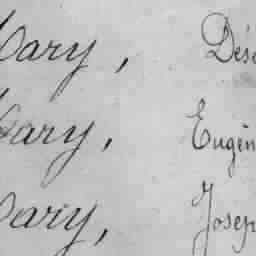 ary, Dés
ary, Eugèn
ary, Josep